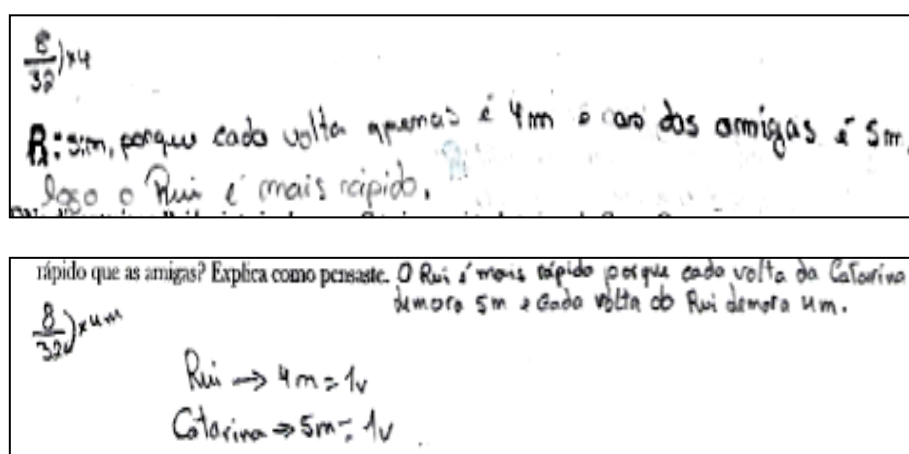 8
32 )×4
R: sim, porque cada volta apenas é 4m e ao das amigas é 5m,
logo o Rui é mais rápido.
rápido que as amigas? Explica como pensaste. O Rui é mais rápido porque cada volta da Catarina
demora 5m e cada volta do Rui demora 4m.
8
32 )×4m
Rui → 4m = 1v
Catarina → 5m = 1v